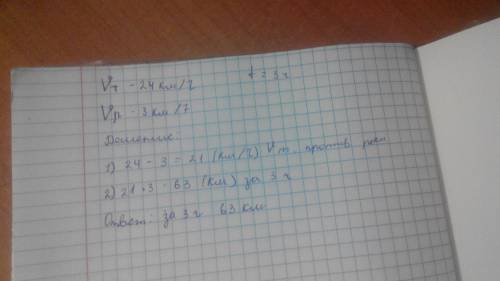 Vт - 24 км/ч t = 3 ч
Vр - 3 км/ч
1) 24 - 3 = 21 (км/ч) Vт. против реки
2) 21 · 3 = 63 (км) за 3 ч
Ответ: за 3 ч 63 км